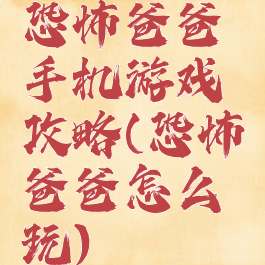 恐怖爸爸
手机游戏
攻略(恐怖
爸爸怎么
玩)